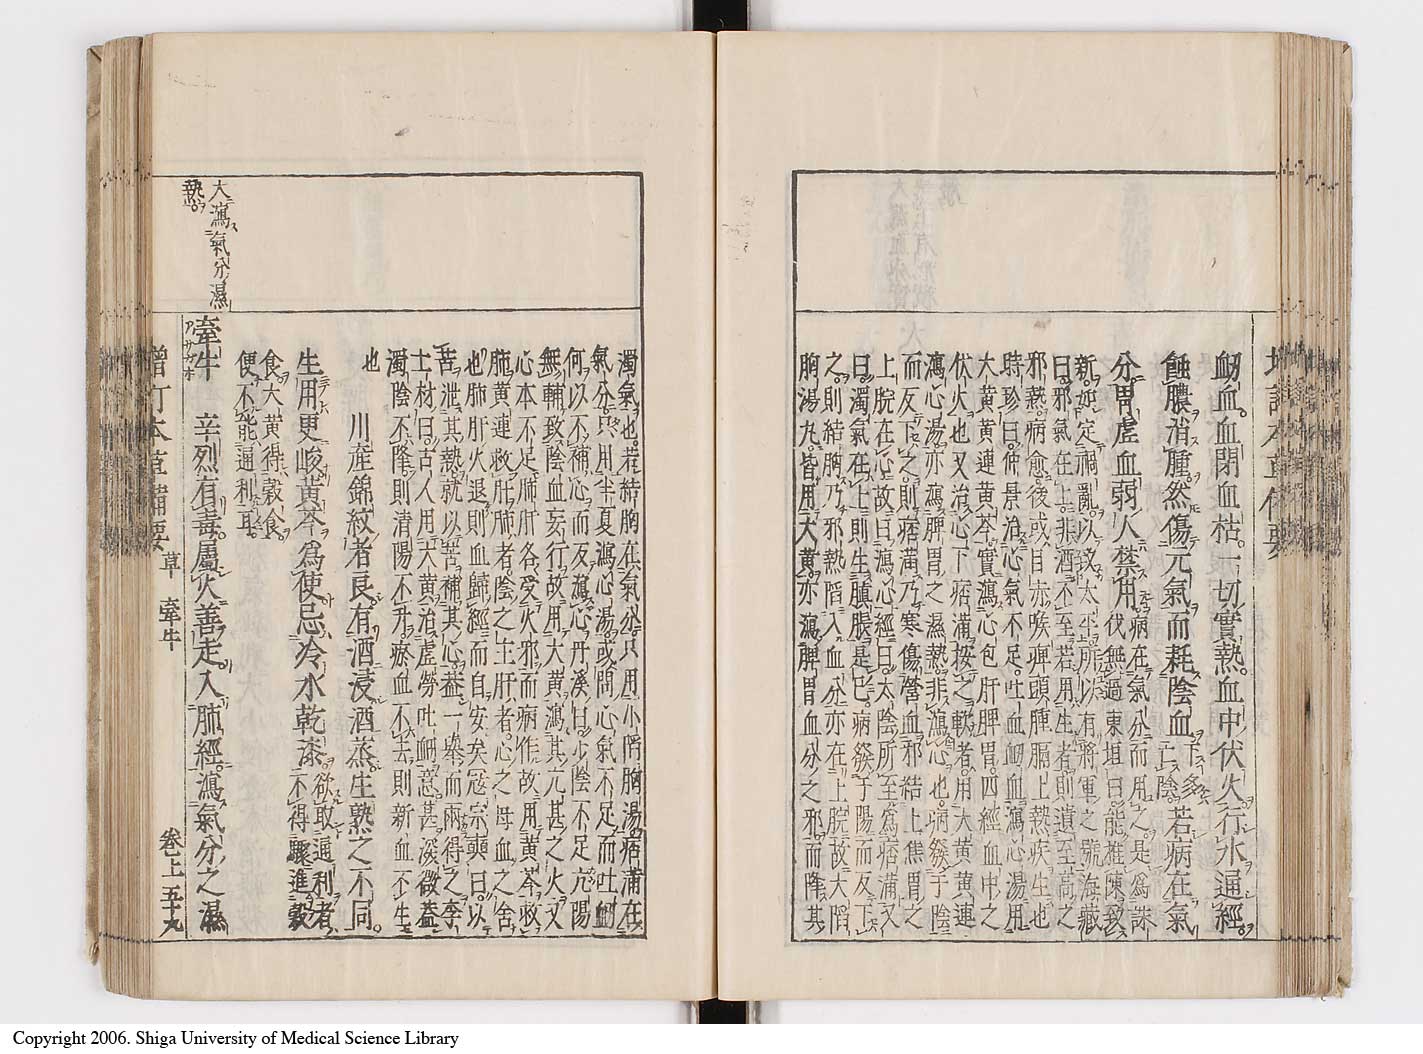 衂血。血閉血枯。一切實熱。血中伏火。行水通經。
蝕膿消腫。然傷元氣而耗陰血。下多亡陰。若病在氣
分。胃虛血弱人禁用。病在氣分而用之。是爲誅
伐無過。東垣曰。能推陳致
新。如定禍亂。以致太平。所以有將軍之號。海藏
曰。邪氣在上。非酒不至。若用生者。則遺至高之
邪熱。病愈後。或目赤喉痺。頭腫膈上熱疾生也。
時珍曰。仲景治心氣不足。吐血衂血。瀉心湯用
大黄黄連黄芩。實瀉心包肝脾胃四經血中之
伏火也。又治心下痞滿。按之軟者。用大黄黄連
瀉心湯。亦瀉脾胃之濕熱。非瀉心也。病發于陰
而反下之。則痞滿。乃寒傷營血。邪結上焦。胃之
上脘在心。故曰瀉心。經曰。太陰所至爲痞滿。又
曰。濁氣在上。則生䐜脹是已。病發于陽而反下
之。則結胸。乃邪熱陷入血分。亦在上脘。故大陷
胸湯丸。皆用大黄。亦瀉脾胃血分之邪。而降其
濁氣也。若結胸在氣分。只用小陷胸湯。痞滿在
氣分。只用半夏瀉心湯。或問心氣不足而吐衂。
何以不補心而反瀉心。丹溪曰。少陰不足。亢陽
無輔。致陰血妄行。故用大黄瀉其亢甚之火。又
心本不足。肺肝各受火邪而病作。故用黄芩救
肺。黄連救肝。肺者陰之主。肝者心之母。血之舍
也。肺肝火退。則血歸經而自安矣。寇宗奭曰。以
苦泄其熱。就以苦補其心。葢一舉而兩得之。李
士材曰。古人用大黄治虛勞吐衂。意甚深微。葢
濁陰不降。則清陽不升。瘀血不去。則新血不生
也
川産錦紋者良。有酒浸酒蒸。生熟之不同。
生用更峻。黄芩爲使。忌冷水乾漆。欲取通利者。
不得驟進穀
食。大黄得穀食
便不能通利耳。
大瀉氣分濕
熱。
牽牛 辛烈有毒。屬火善走。入肺經。瀉氣分之濕
アサガホ
增訂本草備要 草 牽牛 卷上 五十九